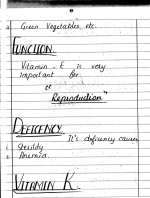 4. Green Vegetables, etc.
FUNCTION.
Vitamin - E is very
Important for
"Reproduction"
DEFICENCY.
It's deficency causes
1. Sterility
2. Anemia.
VITAMIN K.